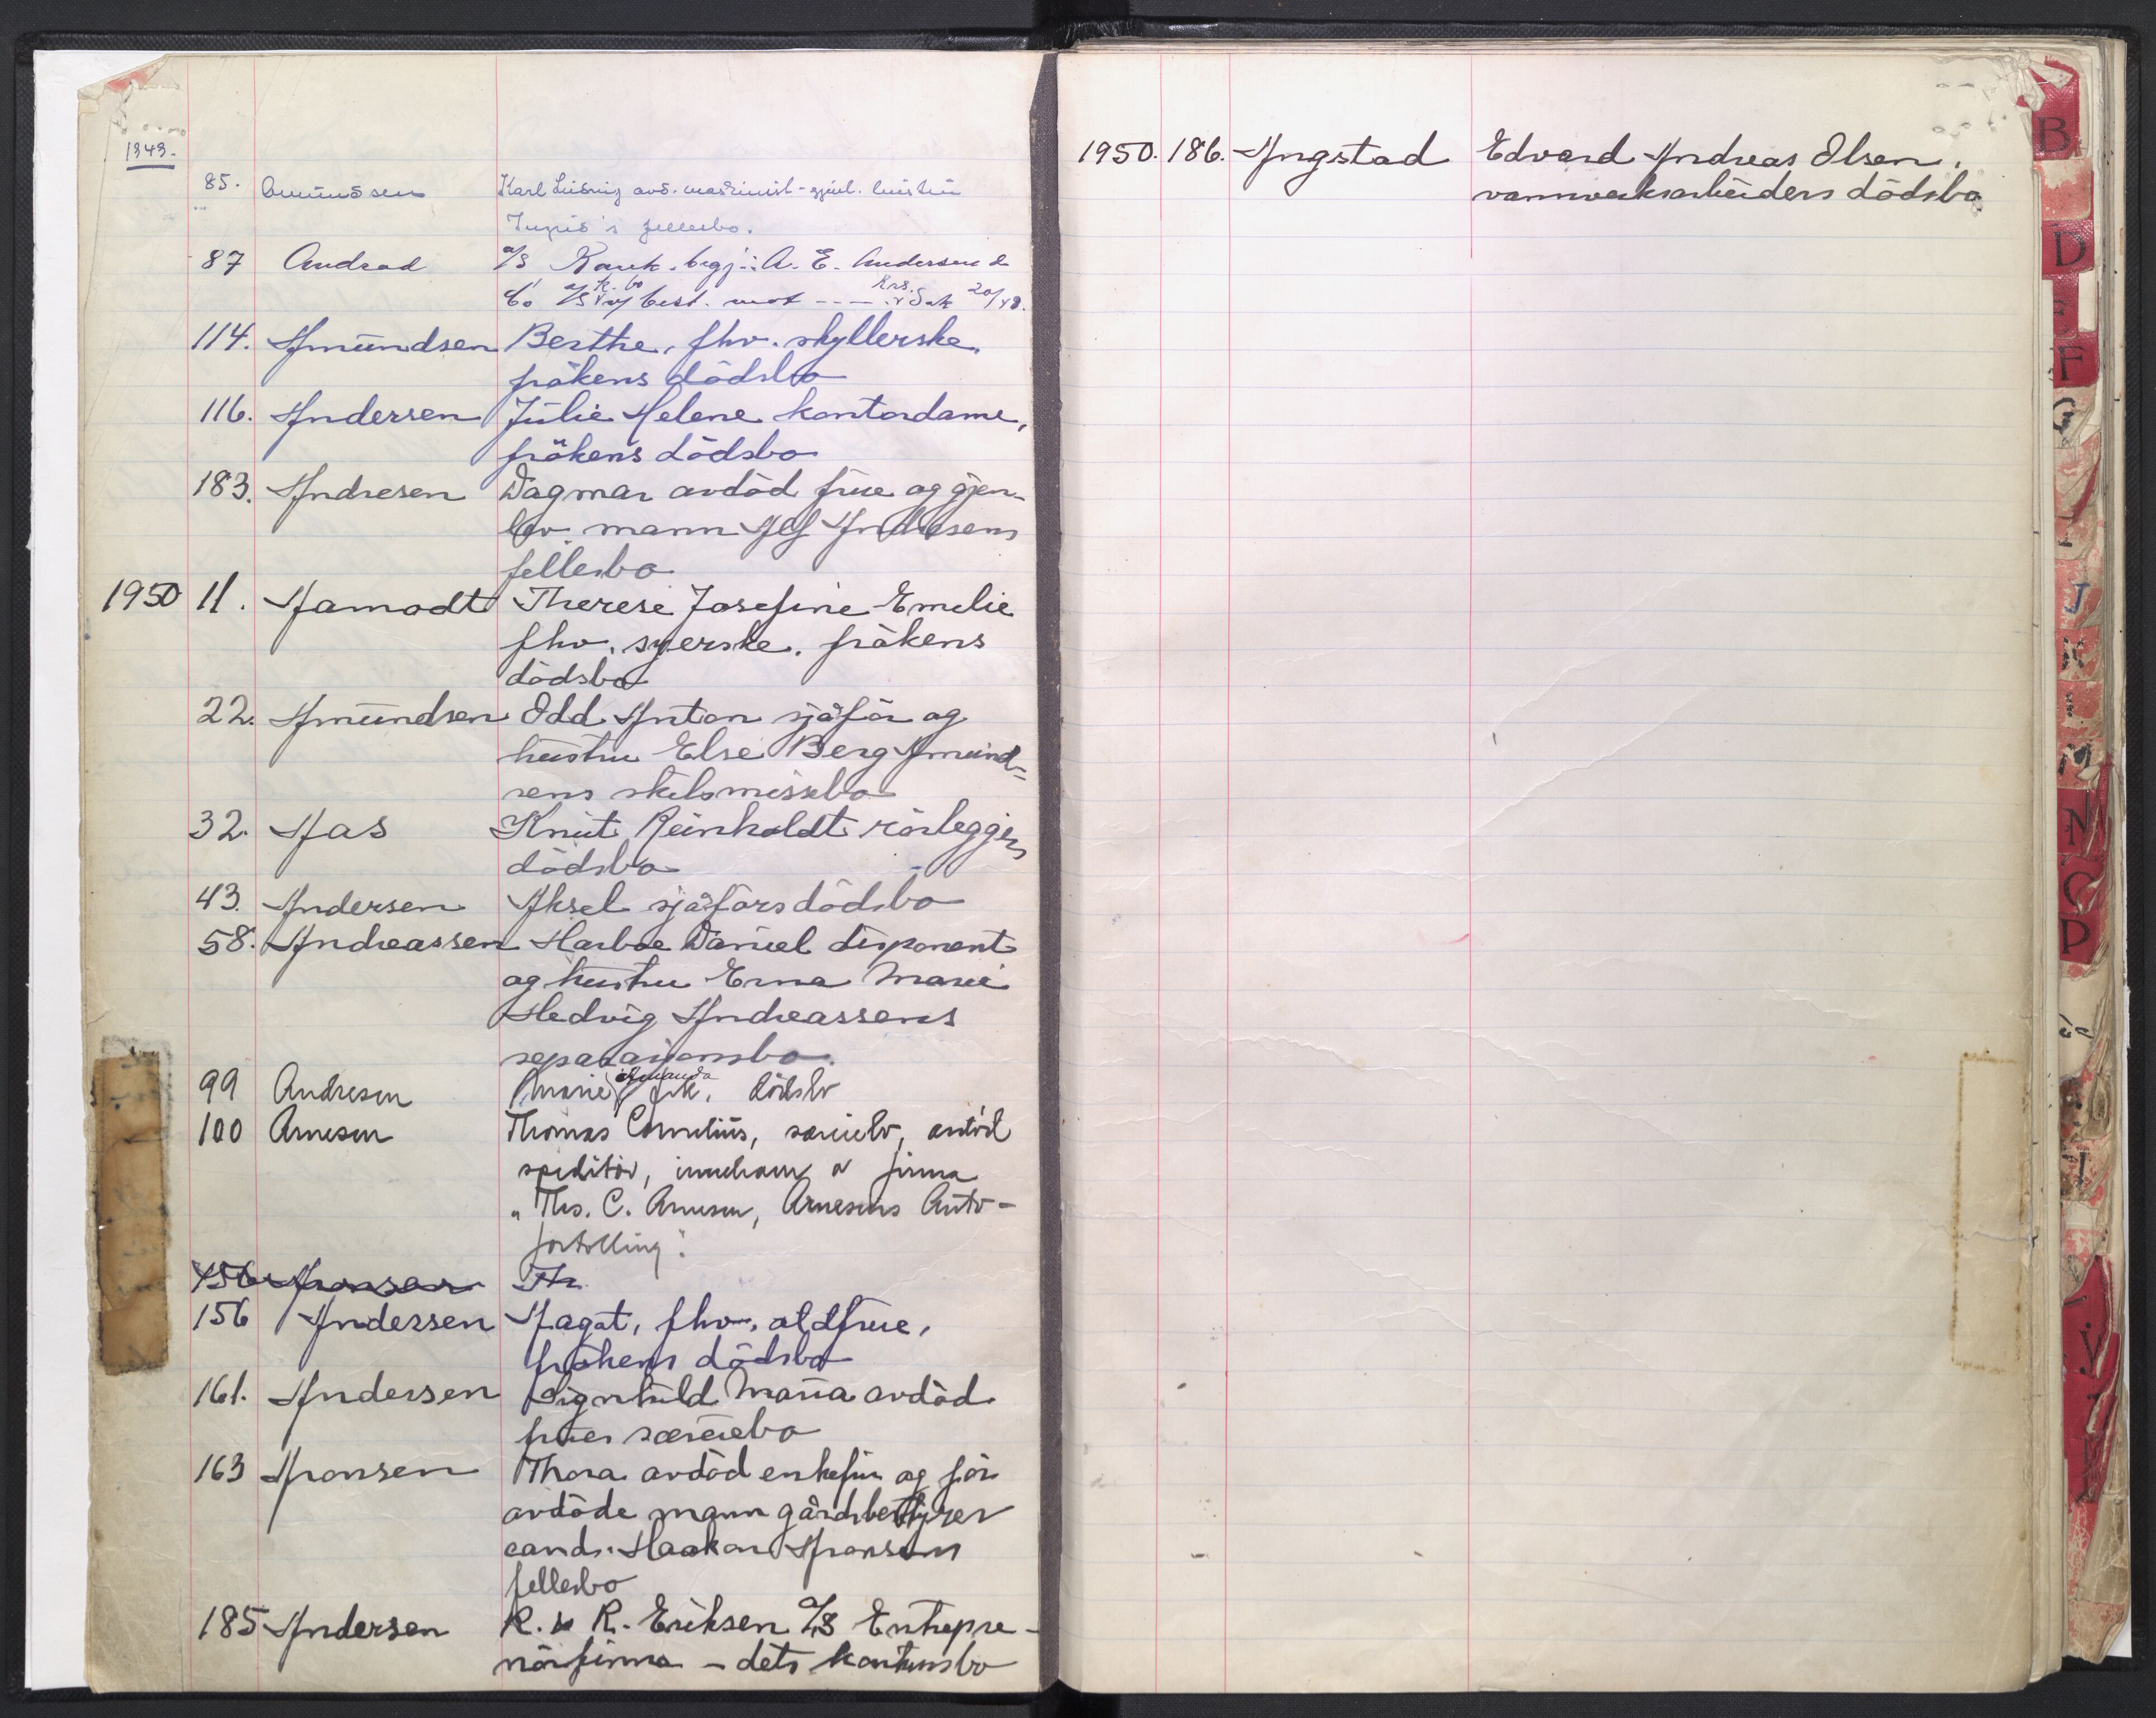 1949.
85. Amundsen Karl Ludvig avd. maskinist - gjenl. hustru
Ingrid's fellesbo.
87 Andrad A/S Konk. begj.: A. E. Andersen &
Co A/S best. mot - - - Sak 20/49.
114. Amundsen Berthe, fhv. skyllerske,
frökens dödsbo
116. Andersen Julie Helene kontordame,
frökens dödsbo
183. Andresen Dagmar avdöd frue og gjen-
lev. mann Alf Andresens
fellesbo
1950 11. Aamodt Therese Josefine Emelie
fhv. syerske. frökens
dödsbo
22. Amundsen Odd Anton sjåför og
hustru Else Berg Amund=
sens skilsmissebo
32. Aas Knut Reinholdt rörleggers
dödsbo
43. Andersen Aksel sjåförs dödsbo
58. Andreassen Harboe Daniel disponent
og hustru Erna Marie
Hedvig Andreassens
separasjonsbo.
99 Andresen Marie Amanda frk. dödsbo
100 Arnesen Thomas Cornelius, særeiebo, avdöd
speditör, innehaver av firma
"Ths. C. Arnesen, Arnesens Auto-
fortolling".
156 Aronsen Th.
156 Andersen Aagot, fhv. oldfrue,
frökens dödsbo
161. Andersen Signhild Maria avdöd
frues særeiebo
163 Aronsen Thora avdöd enkefru og för
avdöde mann gårdsbestyrer
cand. Haakon Aronsens
fellesbo
185 Andersen R. & R. Eriksen A/S Entrepre-
nörfirma - dets konkursbo
1950. 186. Angstad Edvard Andreas Olsen,
vannverksarbeiders dödsbo
B
D
E
F
G
J
K
M
N
O
P
V